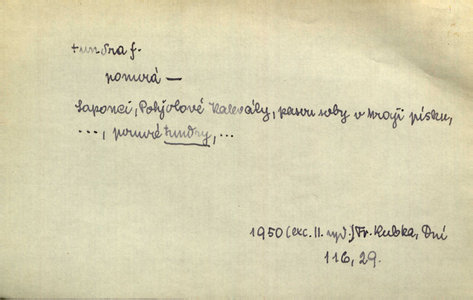 tundra f.
ponurá —
Laponci, Pohjolové Kalevaly, pasou soby v kraji písku,
..., ponuré tundry, ...
1950 (exc. II. vyd.) Fr. Kubka, Dní
116, 29.